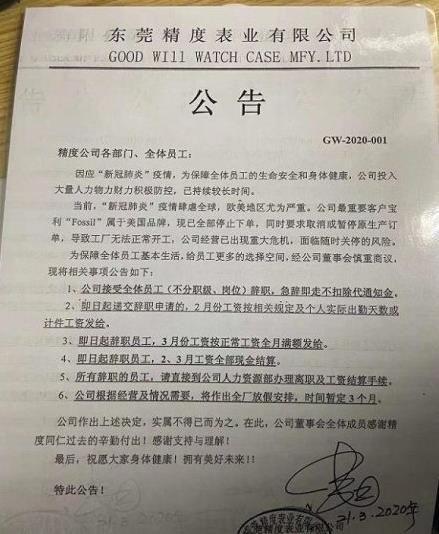 东莞精度表业有限公司
GOOD Will WATCH CASE MFY.LTD
公告
GW-2020-001
精度公司各部门、全体员工：
因应“新冠肺炎”疫情，为保障全体员工的生命安全和身体健康，公司投入
大量人力物力财力积极防控，已持续较长时间。
当前，“新冠肺炎”疫情肆虐全球，欧美地区尤为严重。公司最重要客户宝
利“Fossil”属于美国品牌，现已全部停止下单，同时要求取消或暂停原生产订
单，导致工厂无法正常开工，公司经营已出现重大危机，面临随时关停的风险。
为保障全体员工基本生活，给员工更多的选择空间，经公司董事会慎重商议，
现将相关事项公告如下：
1、公司接受全体员工（不分职级、岗位）辞职，急辞即走不扣除代通知金。
2、即日起递交辞职申请的，2月份工资按相关规定及个人实际出勤天数或
计件工资发给。
3、即日起辞职员工，3月份工资按正常工资全月满额发给。
4、即日起辞职员工，2、3月工资全部现金结算。
5、所有辞职的员工，请直接到公司人力资源部办理离职及工资结算手续。
6、公司根据经营及情况需要，将作出全厂放假安排，时间暂定3个月。
公司作出上述决定，实属不得已而为之。在此，公司董事会全体成员感谢精
度同仁过去的辛勤付出！感谢支持与理解！
最后，祝愿大家身体健康！拥有美好未来！！
特此公告！
31.3.2020年
东莞精度表业有限公司